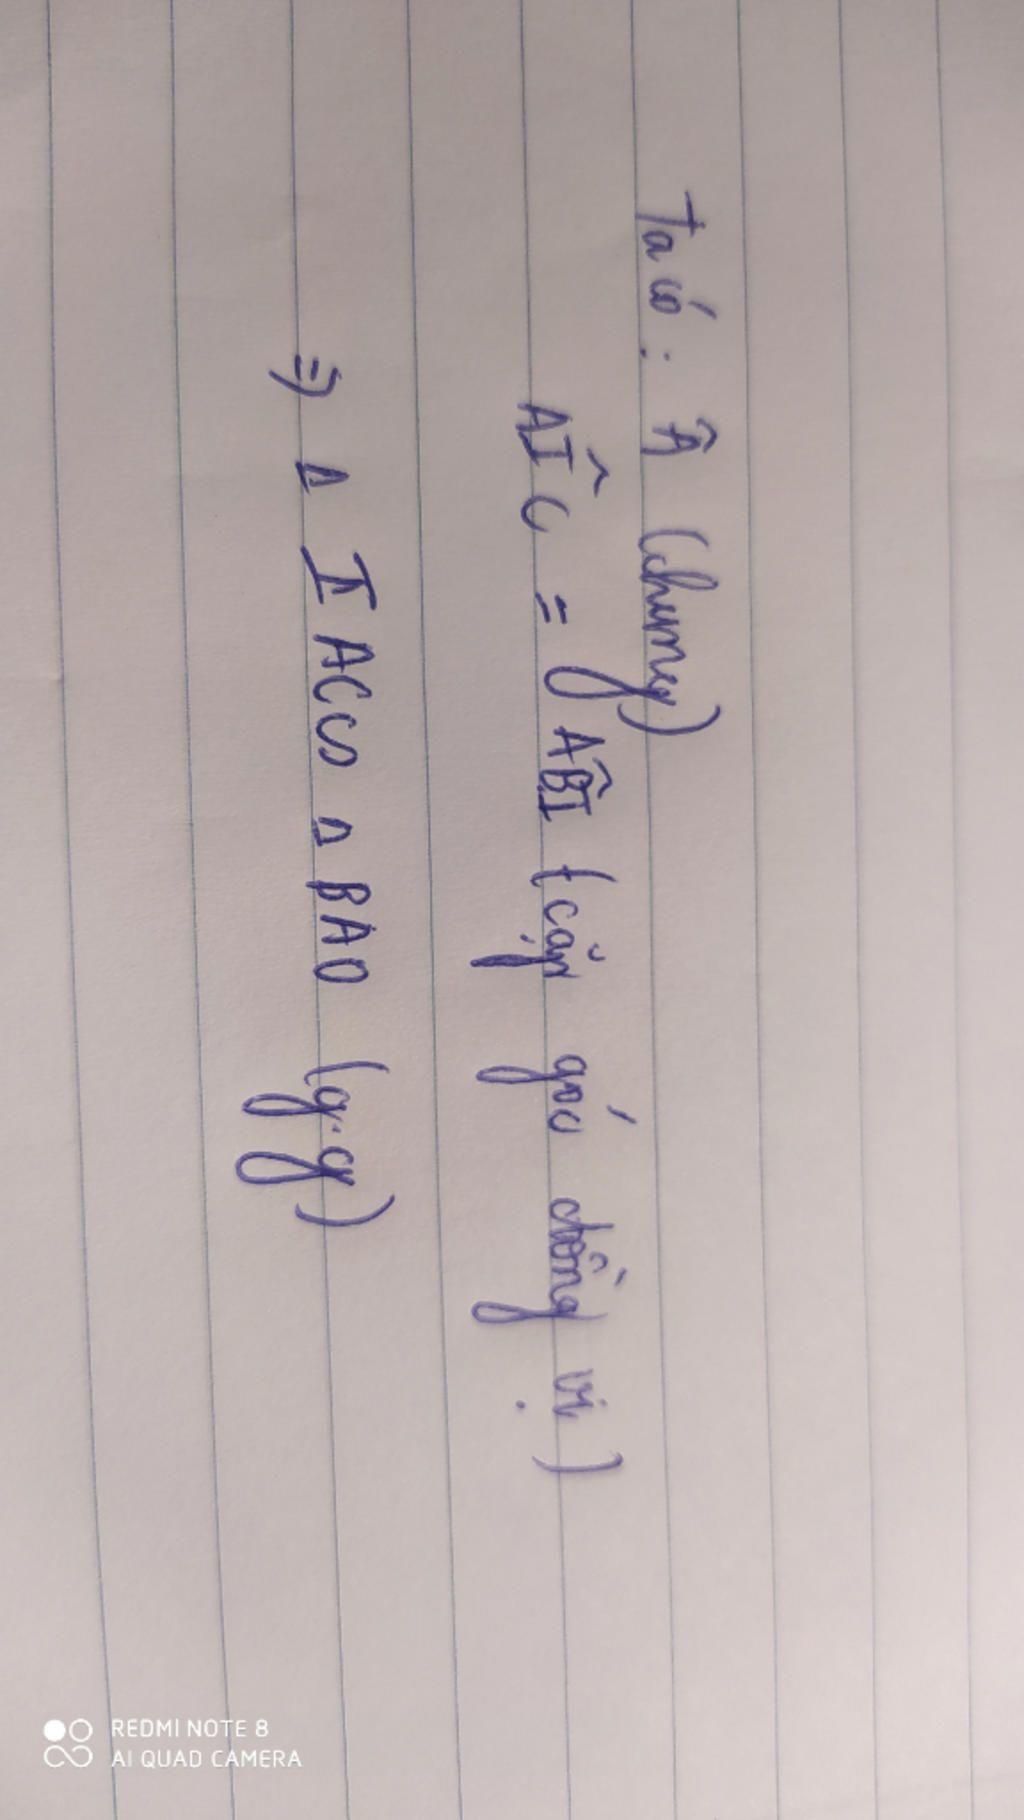 Ta có: Â (chung)
AÎC = AB̂I (cặp góc đồng vị)
⇒ Δ IAC ∽ Δ BAO (g.g)
REDMI NOTE 8
AI QUAD CAMERA